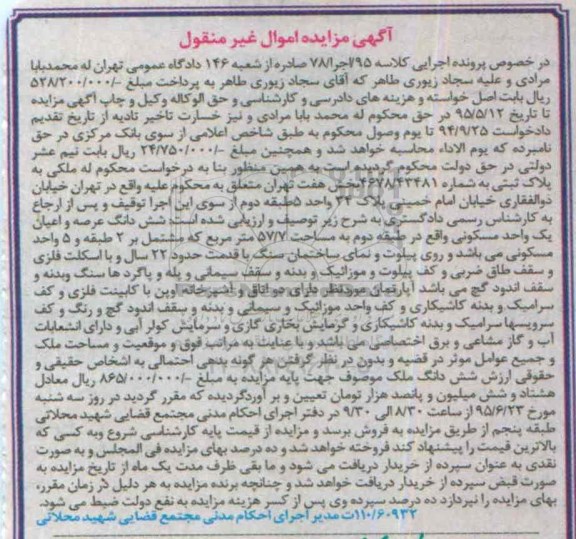 آگهی مزایده اموال غیر منقول
در خصوص پرونده اجرایی کلاسه ۹۵/اجرا/۷۸ صادره از شعبه ۱۴۶ دادگاه عمومی تهران له محمدبابا
مرادی و علیه سجاد زیوری طاهر که آقای سجاد زیوری طاهر به پرداخت مبلغ -/۵۳۸/۲۰۰/۰۰۰
ریال بابت اصل خواسته و هزینه های دادرسی و کارشناسی و حق الوکاله وکیل و چاپ آگهی مزایده
تا تاریخ ۹۵/۵/۱۲ در حق محکوم له محمد بابا مرادی و نیز خسارت تاخیر تادیه از تاریخ تقدیم
دادخواست ۹۴/۹/۲۵ تا یوم وصول محکوم به طبق شاخص اعلامی از سوی بانک مرکزی در حق
نامبرده که یوم الاداء محاسبه خواهد شد و همچنین مبلغ -/۲۴/۷۵۰/۰۰۰ ریال بابت نیم عشر
دولتی در حق دولت محکوم گردیده است به همین منظور بنا به درخواست محکوم له ملکی به
پلاک ثبتی به شماره ۴۴۷۸/۴۳۴۸۱ بخش هفت تهران متعلق به محکوم علیه واقع در تهران خیابان
ذوالفقاری خیابان امام خمینی پلاک ۳۴ واحد ۵ طبقه دوم از سوی این اجرا توقیف و پس از ارجاع
به کارشناس رسمی دادگستری به شرح زیر توصیف و ارزیابی شده است: شش دانگ عرصه و اعیان
یک واحد مسکونی واقع در طبقه دوم به مساحت ۵۷/۷ متر مربع که مشتمل بر ۲ طبقه و ۵ واحد
مسکونی می باشد و روی پیلوت و نمای ساختمان سنگ با قدمت حدود ۲۲ سال و با اسکلت فلزی
و سقف طاق ضربی و کف پیلوت و موزائیک و بدنه و سقف سیمانی و پله و پاگرد ها سنگ وبدنه و
سقف اندود گچ می باشد آپارتمان موردنظر دارای دو اتاق و آشپزخانه اوپن با کابینت فلزی و کف
سرامیک و بدنه کاشیکاری و کف واحد موزائیک و سیمانی و بدنه و سقف اندود گچ و رنگ و کف
سرویسها سرامیک و بدنه کاشیکاری و گرمایش بخاری گازی و سرمایش کولر آبی و دارای انشعابات
آب و گاز مشاعی و برق اختصاصی می باشد و با عنایت به مراتب فوق و موقعیت و مساحت ملک
و جمیع عوامل موثر در قضیه و بدون در نظر گرفتن هر گونه بدهی احتمالی به اشخاص حقیقی و
حقوقی ارزش شش دانگ ملک موصوف جهت پایه مزایده به مبلغ -/۸۶۵/۰۰۰/۰۰۰ ریال معادل
هشتاد و شش میلیون و پانصد هزار تومان تعیین و بر آوردگردیده که مقرر گردید در روز سه شنبه
مورخ ۹۵/۶/۲۳ از ساعت ۸/۳۰ الی ۹/۳۰ در دفتر اجرای احکام مدنی مجتمع قضایی شهید محلاتی
طبقه پنجم از طریق مزایده به فروش برسد و مزایده از قیمت پایه کارشناسی شروع وبه کسی که
بالاترین قیمت را پیشنهاد کند فروخته خواهد شد و ده درصد بهای مزایده فی المجلس و به صورت
نقدی به عنوان سپرده از خریدار دریافت می شود و ما بقی ظرف مدت یک ماه از تاریخ مزایده به
صورت قبض سپرده از خریدار دریافت خواهد شد و چنانچه برنده مزایده به هر دلیل در زمان مقرر،
بهای مزایده را نپردازد ده درصد سپرده وی پس از کسر هزینه مزایده به نفع دولت ضبط می شود.
۱۱۰/۶۰۹۳۲ت مدیر اجرای احکام مدنی مجتمع قضایی شهید محلاتی